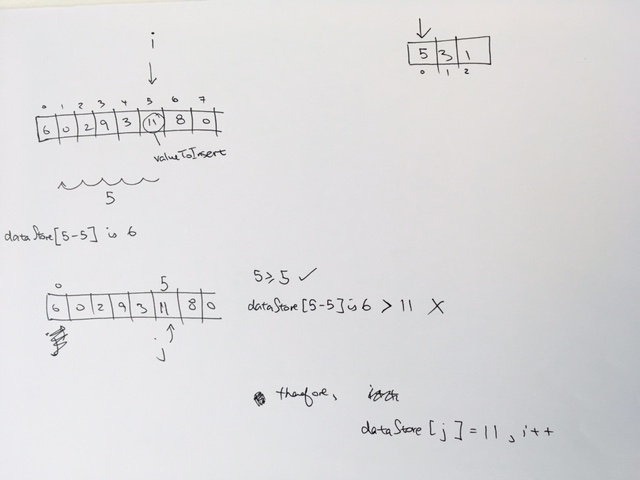 i
5 3 1
0 1 2
0 1 2 3 4 5 6 7
6 0 2 9 3 11 8 0
valueToInsert
5
dataStore[5-5] is 6
0 5
6 0 2 9 3 11 8 0
j
5 ≥ 5 ✓
dataStore[5-5] is 6 > 11 X
therefore,
dataStore[j] = 11, i++